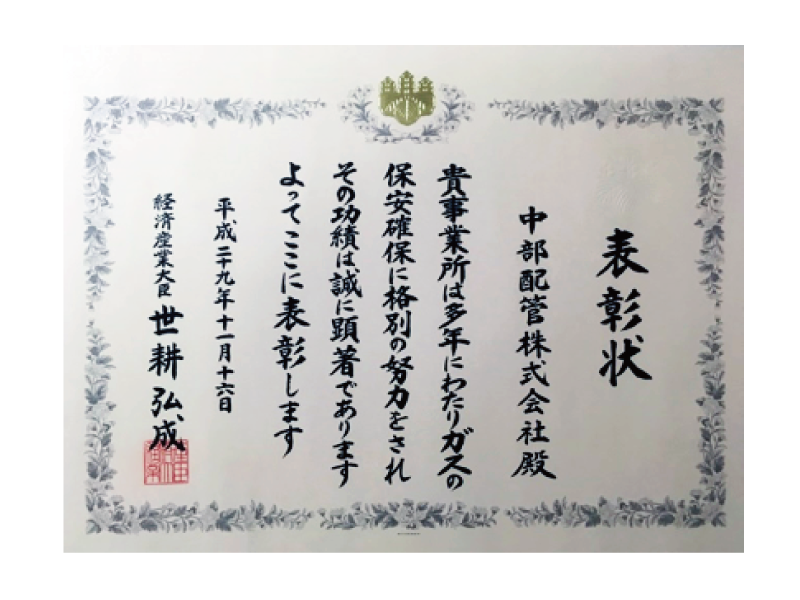 表彰状
中部配管株式会社殿
貴事業所は多年にわたりガスの
保安確保に格別の努力をされ
その功績は誠に顕著であります
よってここに表彰します
平成二十九年十一月十六日
経済産業大臣 世耕弘成